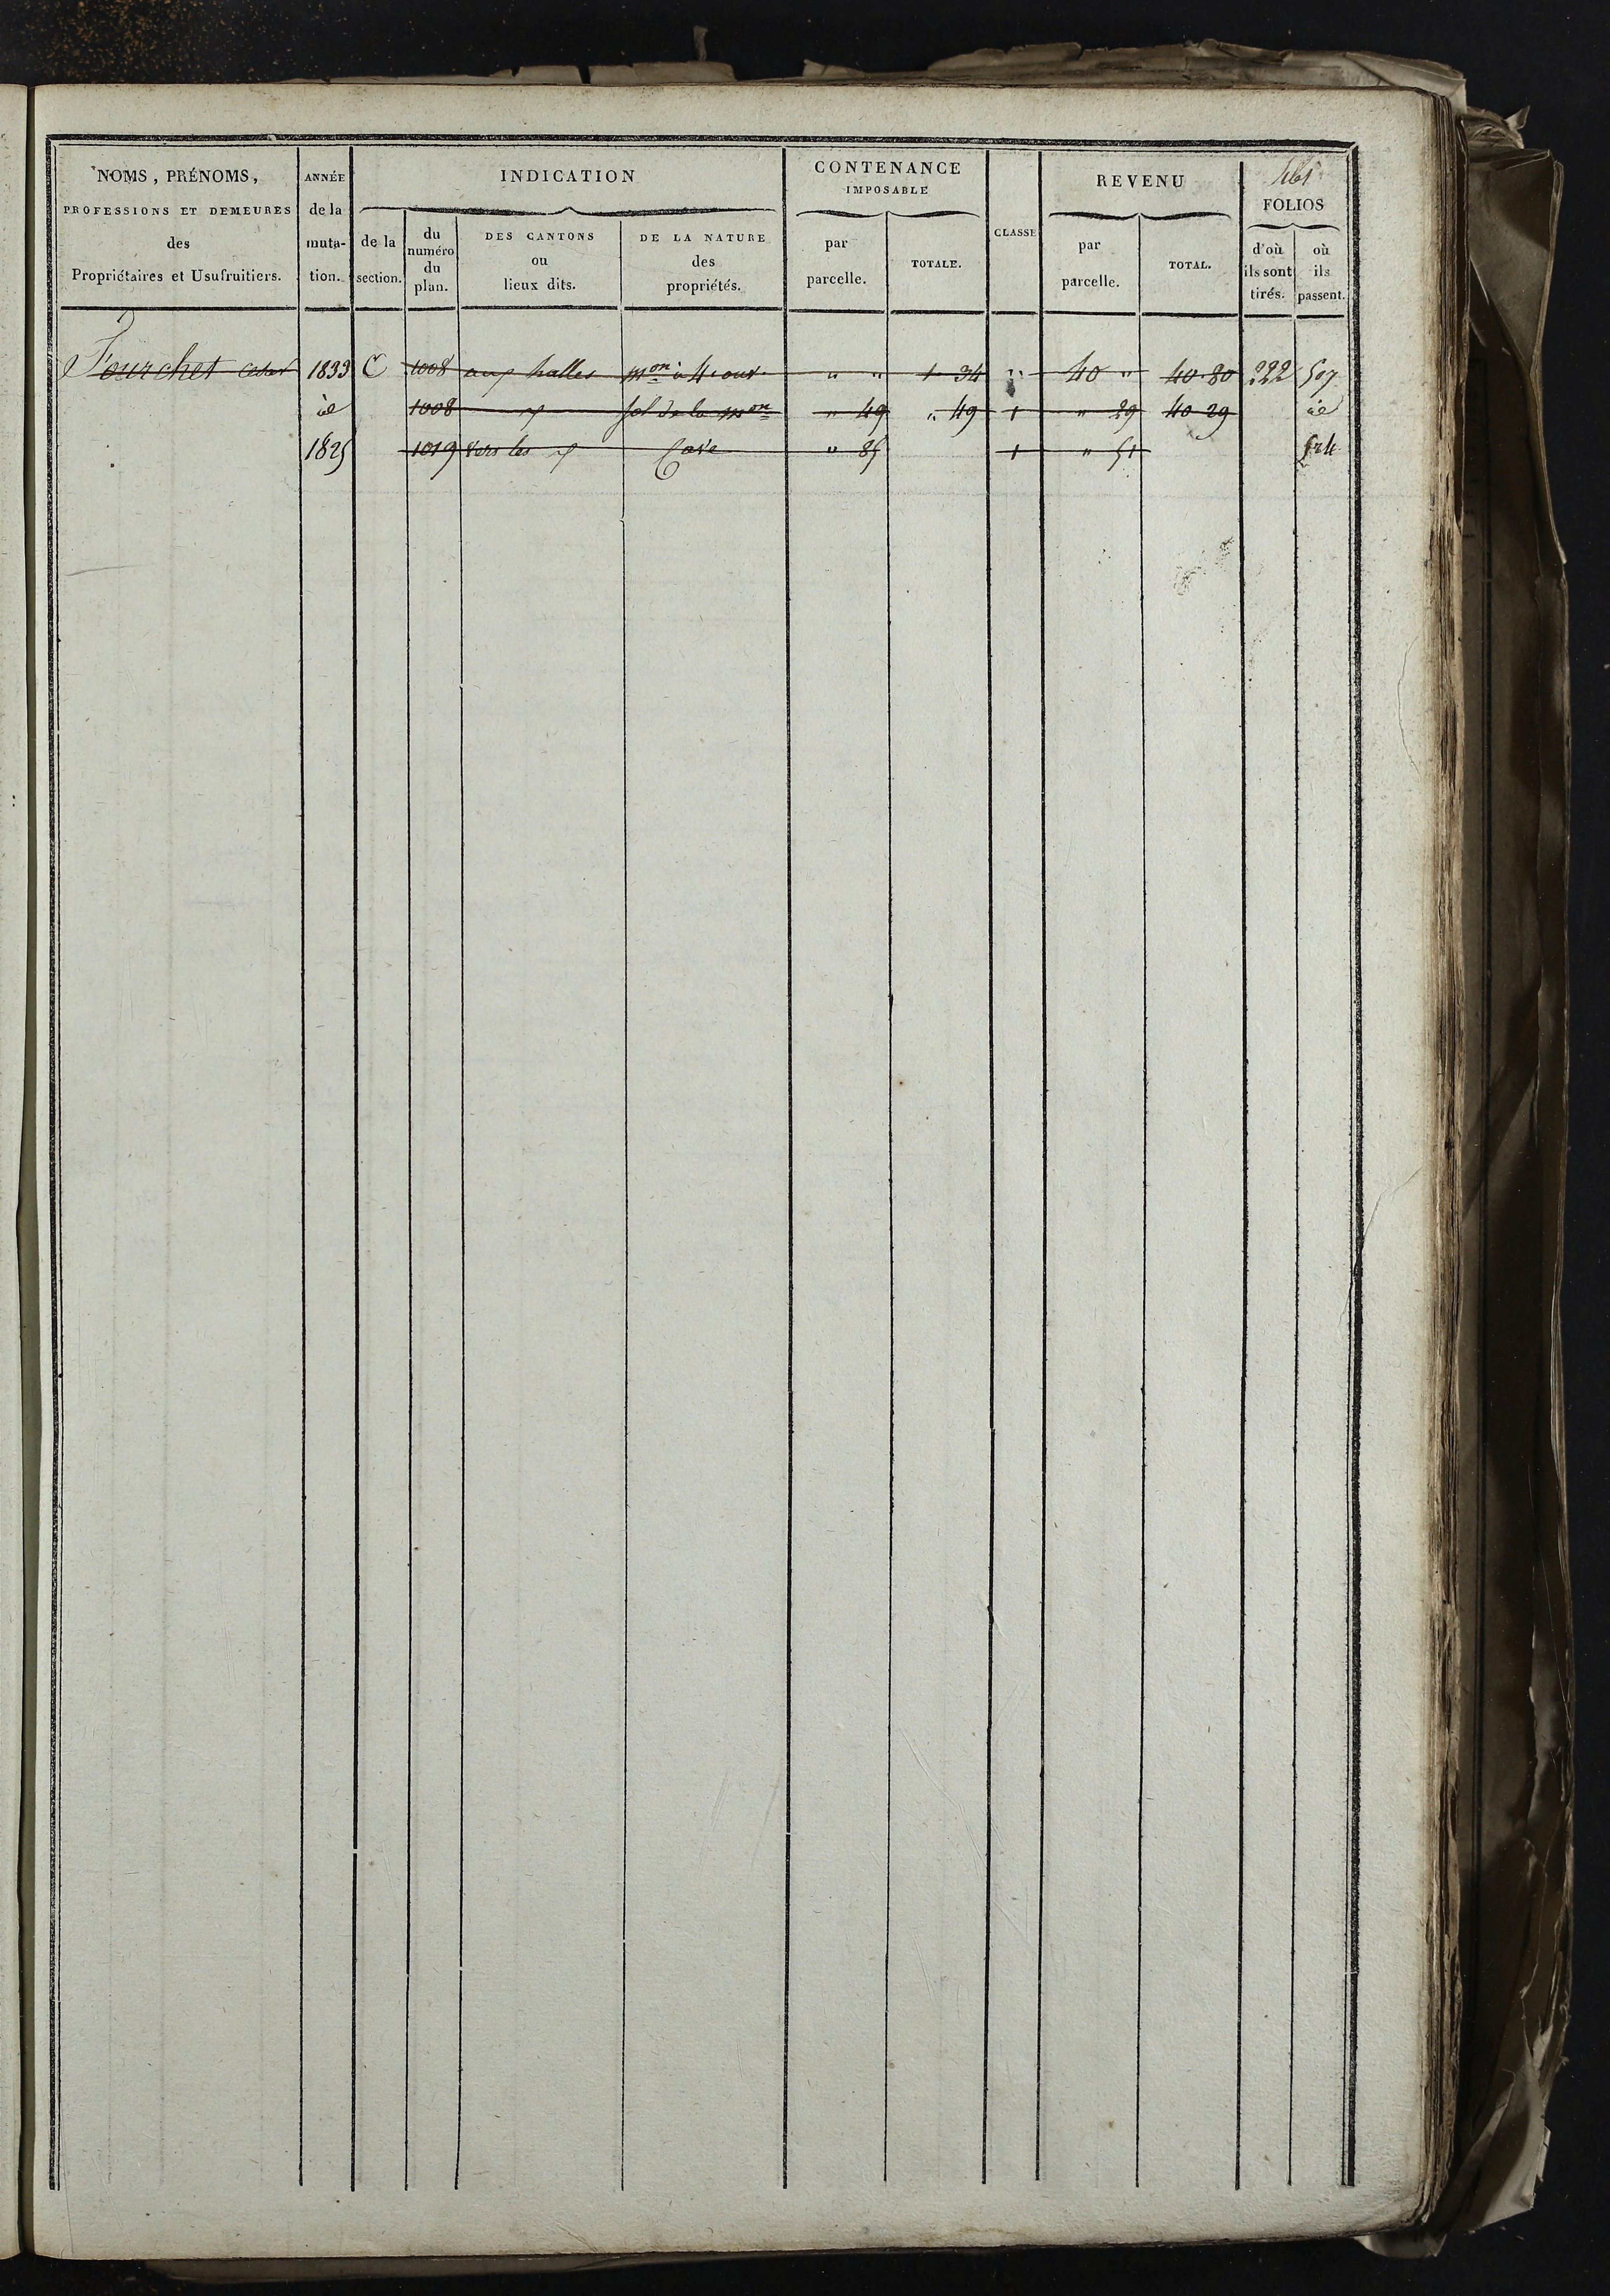 461
NOMS, PRÉNOMS, PROFESSIONS ET DEMEURES des Propriétaires et Usufruitiers.
ANNÉE de la muta-tion.
INDICATION
de la section.
du numéro du plan.
DES CANTONS ou lieux dits.
DE LA NATURE des propriétés.
CONTENANCE IMPOSABLE
par parcelle.
TOTALE.
CLASSE
REVENU
par parcelle.
TOTAL.
FOLIOS
d'où ils sont tirés.
où ils passent.
Fourchet 1833 C 1008 aux halles mon à 4 ouv. " " 1 34 " 40 " 40 80 222 507
id 1008 sol de la mon " 49 " 49 1 " 29 40 29 id
1825 1019 vers les Cave " 85 1 " 51 524